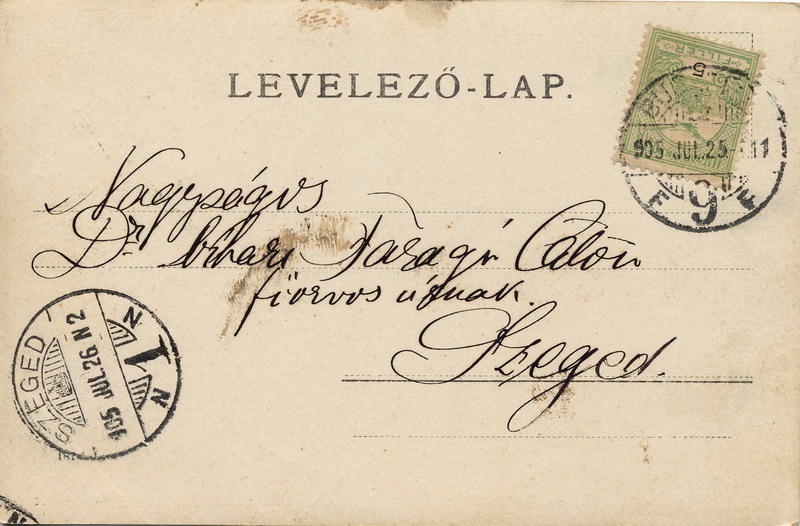 LEVELEZŐ-LAP.
FILLÉR
5
905 JUL.25
9
E E
Nagyságos
Dr. bihari Faragó Ödön
főorvos úrnak.
Szeged.
SZEGED
905 JUL 26 N 2
N 1 N